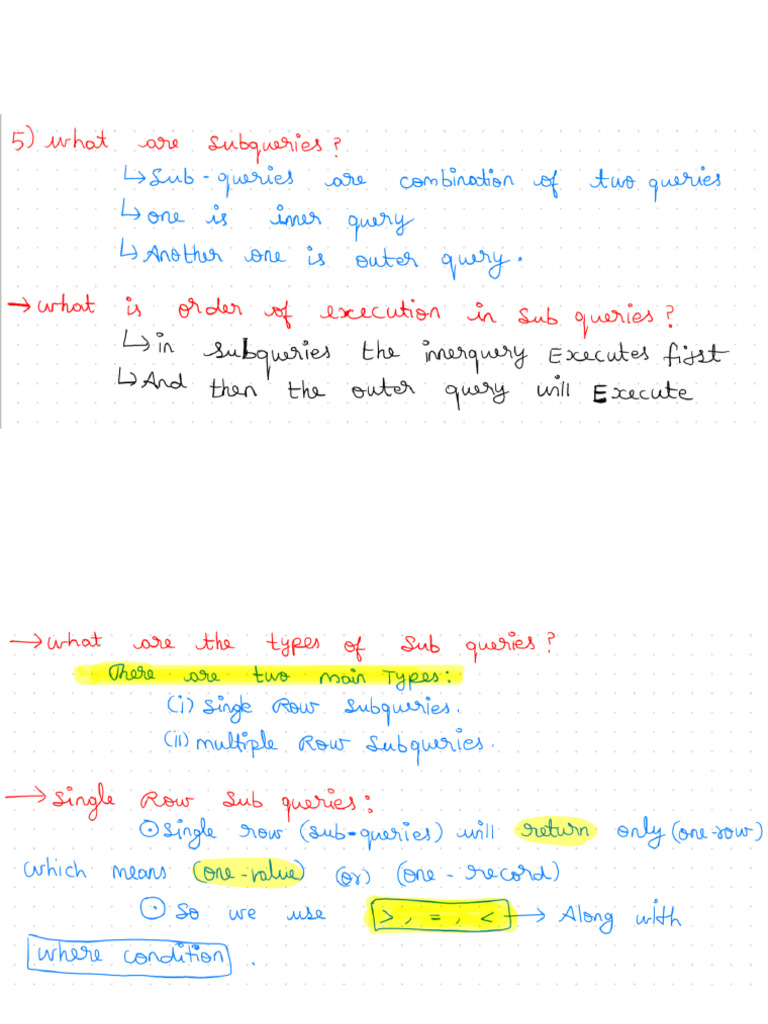 5) what are subqueries?
↳ Sub-queries are combination of two queries
↳ one is inner query
↳ Another one is outer query.
→ what is order of execution in sub queries?
↳ in subqueries the innerquery Executes first
↳ And then the outer query will Execute
→ what are the types of sub queries?
There are two main Types:
(i) Single Row Subqueries.
(ii) multiple Row Subqueries.
→ Single Row Sub queries:
⊙ Single row (sub-queries) will return only (one-row)
which means (one-value) (or) (one-record)
⊙ So we use >, =, < → Along with
where condition.